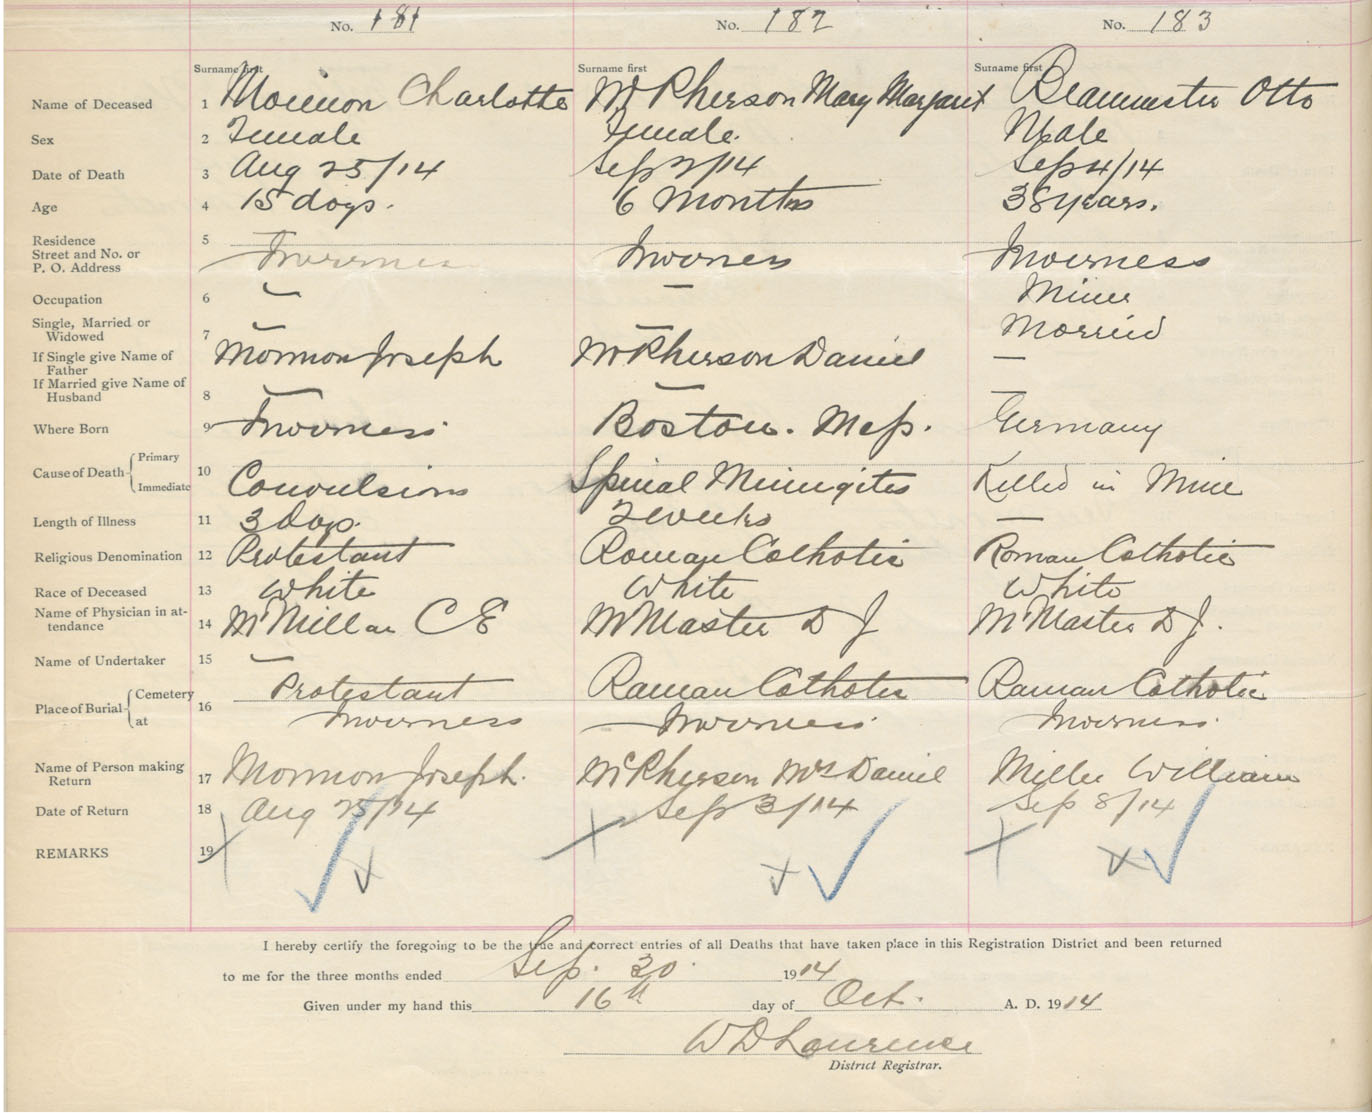 No. 181 No. 182 No. 183
Surname first Surname first Surname first
Name of Deceased 1 Charlotte McPherson Mary Margaret Otto
Sex 2 Female Female. Male
Date of Death 3 Aug 25/14 Sep 2/14 Sep 4/14
Age 4 15 days. 6 Months 38 years.
Residence
Street and No. or
P. O. Address 5 Inverness Inverness Inverness
Occupation 6 — — Miner
Single, Married or
Widowed 7 — — Married
If Single give Name of
Father Mormon Joseph McPherson Daniel —
If Married give Name of
Husband 8 — — —
Where Born 9 Inverness Boston. Mass. Germany
Cause of Death { Primary
Immediate 10 Convulsions Spinal Miningites Killed in Mine
Length of Illness 11 3 days. 2 weeks —
Religious Denomination 12 Protestant Roman Catholic Roman Catholic
Race of Deceased 13 White White White
Name of Physician in at-
tendance 14 McMillan C E McMaster D J McMaster D J.
Name of Undertaker 15 —
Place of Burial { Cemetery 16 Protestant Roman Catholic Roman Catholic
at Inverness Inverness Inverness
Name of Person making
Return 17 Mormon Joseph. McPherson Mrs Daniel Miller William
Date of Return 18 Aug 25/14 Sep 3/14 Sep 8/14
REMARKS 19
I hereby certify the foregoing to be the true and correct entries of all Deaths that have taken place in this Registration District and been returned
to me for the three months ended Sep. 30. 1914
Given under my hand this 16th day of Oct. A. D. 1914
W D Lawrence
District Registrar.